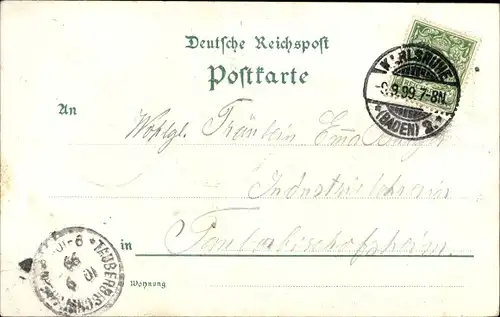 Deutsche Reichspost
Postkarte
KARLSRUHE
-9.9.99.7-8N.
*(BADEN) 2.*
An
Wohlgb. Fräulein Emma
Industrielehrerin
in Tauberbischofsheim.
Wohnung
TAUBERBISCH
10 9 99
9-10